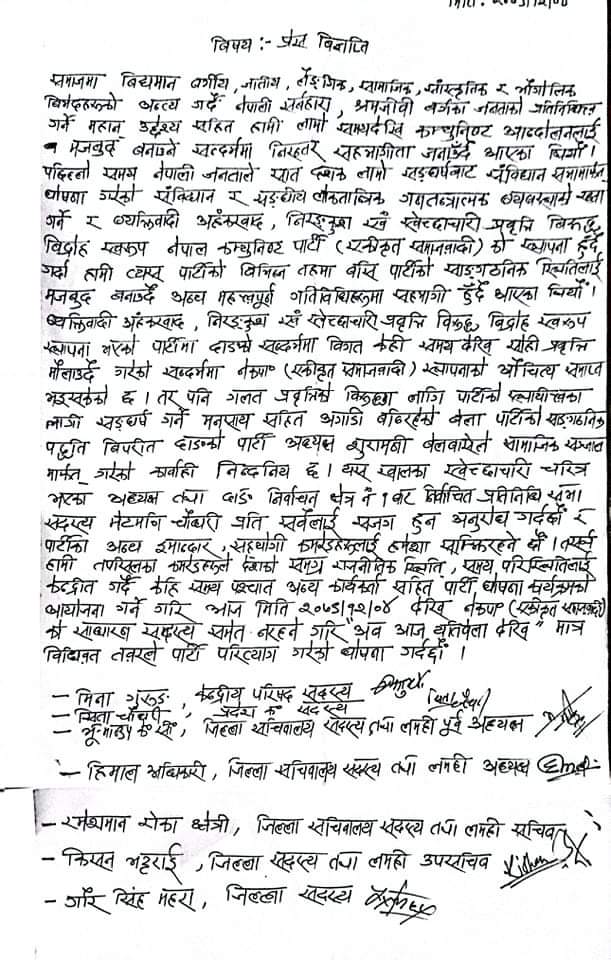 मिति: २०७९/१२/०४
विषय :- प्रेस विज्ञप्ति
समाजमा विद्यमान वर्गीय, जातीय, लैङ्गिक, सामाजिक, सांस्कृतिक र भौगोलिक
विभेदहरूको अन्त्य गर्दै नेपाली सर्वहारा, श्रमजीवी वर्गका जनताको प्रतिनिधित्व
गर्ने महान उद्देश्य सहित हामी लामो समयदेखि कम्युनिष्ट आन्दोलनलाई
मजबुद बनाउने सन्दर्भमा निरन्तर सहभागीता जनाउँदै आएका थियौं।
पछिल्लो समय नेपाली जनताले सात दशक लामो सङ्घर्षबाट संविधान सभामार्फत
घोषणा गरेको संविधान र सङ्घीय लोकतान्त्रिक गणतन्त्रात्मक व्यवस्थाको रक्षा
गर्ने र व्यक्तिवादी अहंकारवाद, निरङ्कुश एवं स्वेच्छाचारी प्रवृत्ति विरूद्ध
विद्रोह स्वरूप नेपाल कम्युनिष्ट पार्टी (एकीकृत समाजवादी) को स्थापना हुँदै
गर्दा हामी त्यस पार्टीको विभिन्न तहमा बसि पार्टीको साङ्गठनिक स्थितिलाई
मजबुद बनाउदै अन्य महत्त्वपूर्ण गतिविधिहरूमा सहभागी हुँदै आएका थियौं।
व्यक्तिवादी अहंकारवाद, निरङ्कुश एवं स्वेच्छाचारी प्रवृत्ति विरूद्ध, विद्रोह स्वरूप
स्थापना भएको पार्टीमा दाङको सन्दर्भमा विगत केही समय देखि सोही प्रवृत्ति
मौलाउदै गएको सन्दर्भमा नेकपा (एकीकृत समाजवादी) स्थापनाको औचित्य समाप्त
भइसकेको छ। तर पनि गलत प्रवृत्तिको विरूद्धका लागि पार्टीको
लागी सङ्घर्ष गर्ने मनसाय सहित अगाडी बढिरहेको बेला पार्टीको सङ्गठनिक
पद्धति विपरित दाङको पार्टी अध्यक्ष घुरामणी वेलवासेले सामाजिक सञ्जाल
मार्फत गरेको कार्वाही निन्दनिय छ। यस खालका स्वेच्छाचारी चरित्र
भएका अध्यक्ष तथा दाङ निर्वाचन क्षेत्र नं १ बाट निर्वाचित प्रतिनिधि सभा
सदस्य मेटमणि चौधरी प्रति सबैलाई सजग हुन अनुरोध गर्दछौं र
पार्टीका अन्य इमान्दार, सहयोगी कमरेडहरूलाई हमेशा सम्झिरहने छौं। तसर्थ
हामी तपसिलका कमरेडहरूले देशको समग्र राजनीतिक स्थिति, समय परिस्थितिलाई
केन्द्रीत गर्दै केहि समय पश्चात अन्य कार्यकर्ता सहित पार्टी घोषणा कार्यक्रमको
आयोजना गर्ने गरि आज मिति २०७९/१२/०४ देखि नेकपा (एकीकृत समाजवादी)
को साधारण सदस्य समेत नरहने गरि "अब आज यतिबेला देखि" मात्र
विधिवत तवरले पार्टी परित्याग गरेको घोषणा गर्दछौं।
– मिना गुरूङ, केन्द्रीय परिषद सदस्य
– सिता चौधरी, प्रदेश क. सदस्य
जिल्ला सचिवालय सदस्य तथा लमही पूर्व अध्यक्ष
– हिमाल अधिकारी, जिल्ला सचिवालय सदस्य तथा लमही अध्यक्ष
– रमेशमान रोका क्षेत्री, जिल्ला सचिवालय सदस्य तथा लमही सचिव
– किसन भट्टराई, जिल्ला सदस्य तथा लमही उपसचिव Kishan
– गोर सिंह महरा, जिल्ला सदस्य